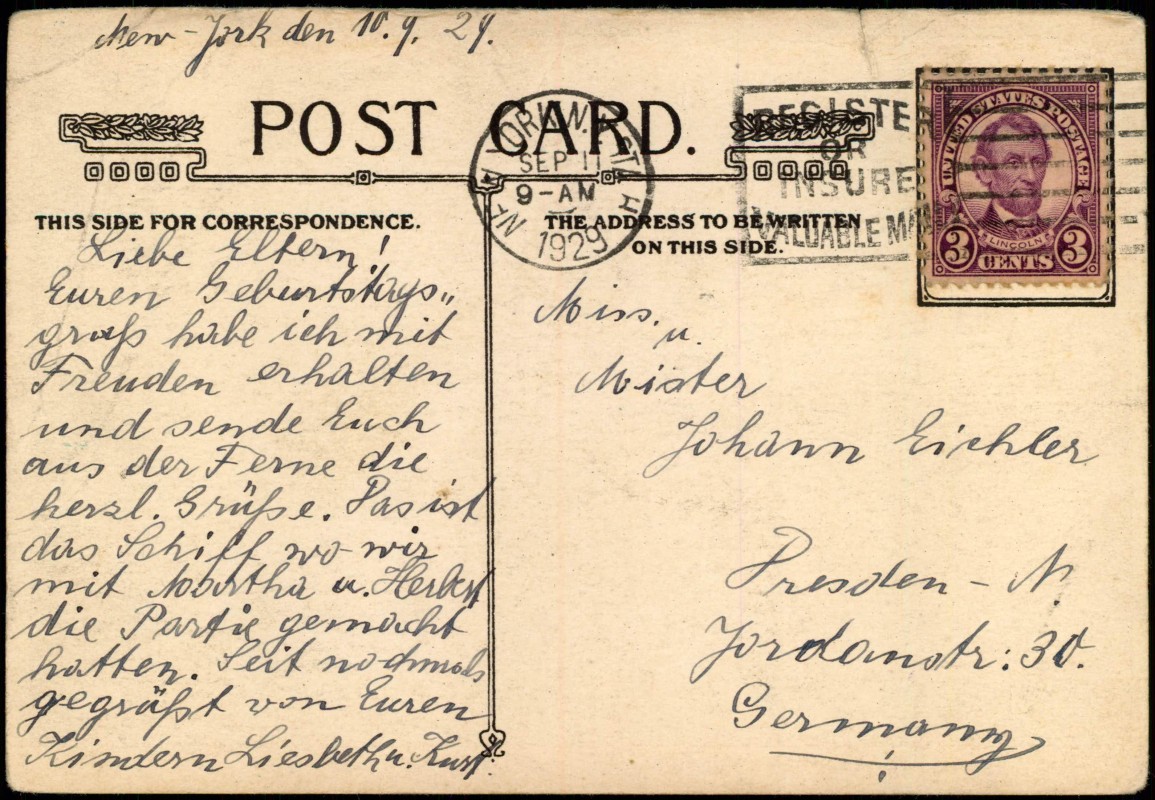 New-York den 10. 9. 29.
POST CARD.
NEW YORK, N.Y. STA. H
SEP 11
9-AM
1929
REGISTE
OR
INSURE
VALUABLE MA
UNITED STATES POSTAGE
LINCOLN
3 CENTS 3
THIS SIDE FOR CORRESPONDENCE.
THE ADDRESS TO BE WRITTEN
ON THIS SIDE.
Liebe Eltern!
Euren Geburtstags„
gruß habe ich mit
Freuden erhalten
und sende Euch
aus der Ferne die
herzl. Grüße. Das ist
das Schiff wo wir
mit Martha u. Herbert
die Partie gemacht
hatten. Seit nochmals
gegrüßt von Euren
Kindern Liesbeth u. Kurt.
Miss. u.
Mister
Johann Eichler
Dresden - N.
Jordanstr: 30.
Germany